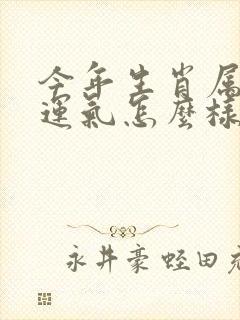 今年生肖属
運氣怎麼樣
永井豪蛭田充